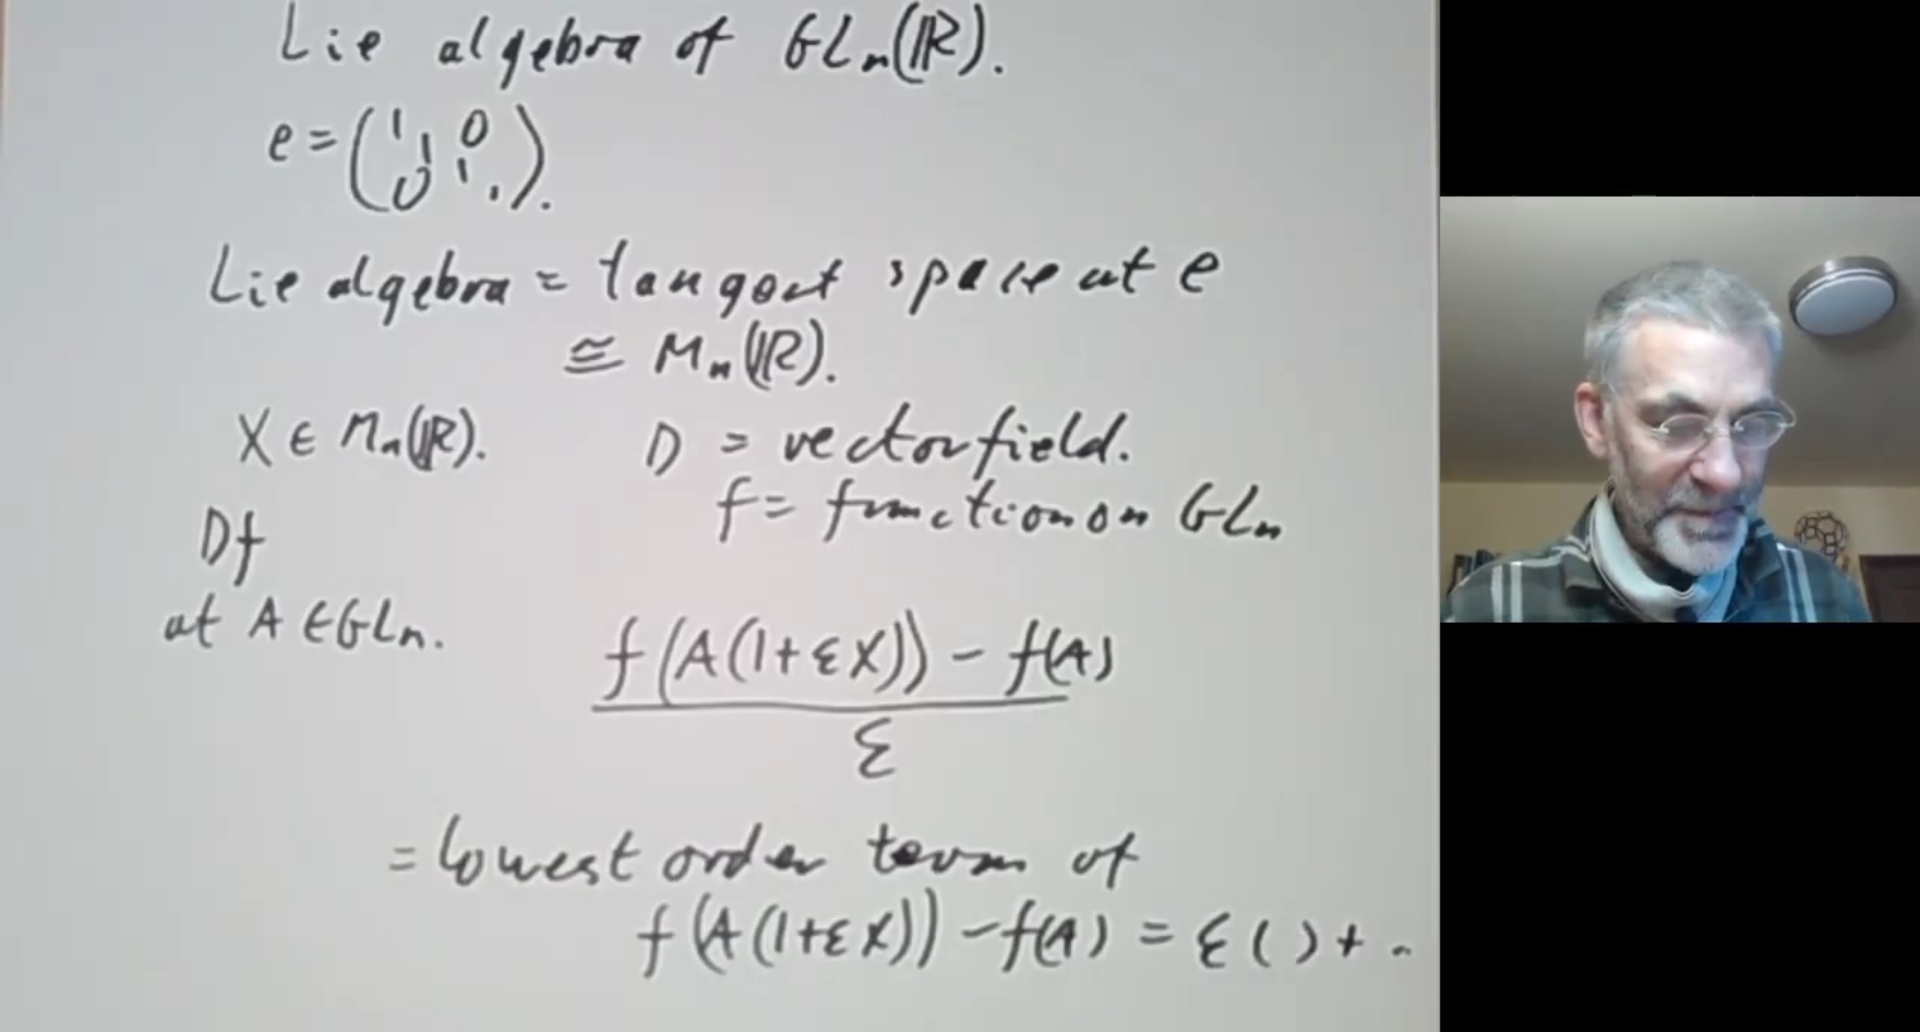 Lie algebra of GLₙ(ℝ).
e = (1 1 0 0 1 .).
Lie algebra = tangent space at e
≅ Mₙ(ℝ).
X ∈ Mₙ(ℝ). D = vector field.
f = function on GLₙ
Df
at A ∈ GLₙ.
f(A(1+εX)) − f(A)
ε
= lowest order term of
f(A(1+εX)) − f(A) = ε ( ) + ..